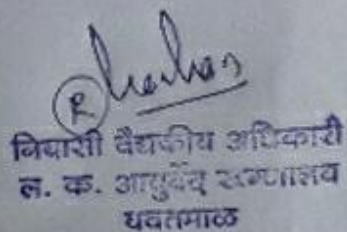 R
निवासी वैद्यकीय अधिकारी
ल. क. आयुर्वेद रुग्णालय
यवतमाळ